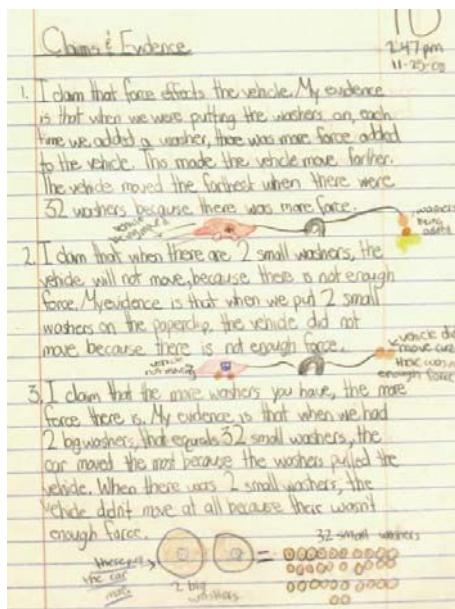 10
2:47pm
11-25-09
Claims & Evidence
1. I claim that force effects the vehicle. My evidence
is that when we were putting the washers on, each
time we added a washer, there was more force added
to the vehicle. This made the vehicle move farther.
The vehicle moved the farthest when there were
32 washers because there was more force.
vehicle being
washers
being
added
2. I claim that when there are 2 small washers, the
vehicle will not move, because there is not enough
force. My evidence is that when we put 2 small
washers on the paperclip, the vehicle did not
move because there is not enough force.
vehicle
not moving
vehicle did
move
there was
enough force
3. I claim that the more washers you have, the more
force there is. My evidence is that when we had
2 big washers, that equals 32 small washers, the
car moved the most because the washers pulled the
vehicle. When there was 2 small washers, the
vehicle didn't move at all because there wasn't
enough force.
these
the car
=
32 small washers
2 big
washers